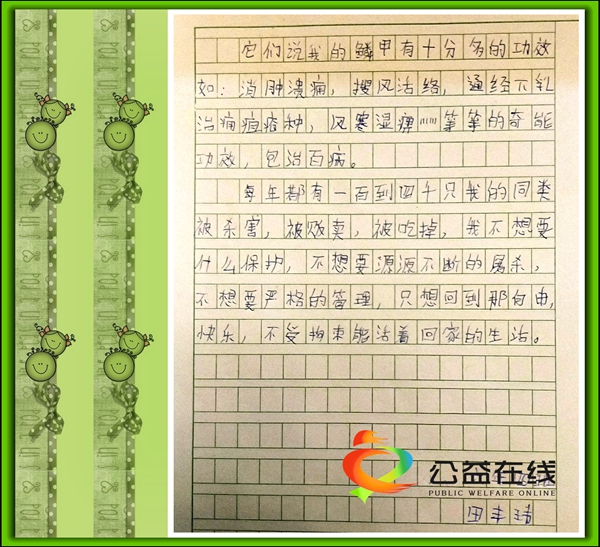 它们说我的鳞甲有十分多的功效
如：消肿溃痈，搜风活络，通经下乳
治痈疽疮种，风寒湿痹……等等的奇能
功效，包治百病。
每年都有一百到四千只我的同类
被杀害，被贩卖，被吃掉，我不想要
什么保护，不想要源源不断的屠杀，
不想要严格的管理，只想回到那自由，
快乐，不受拘束能活着回家的生活。
公益在线
PUBLIC WELFARE ONLINE